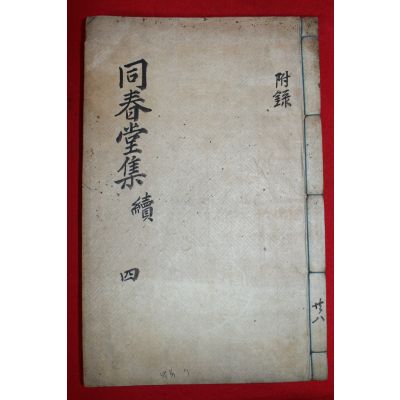 附錄
同春堂集 續 四
廿八